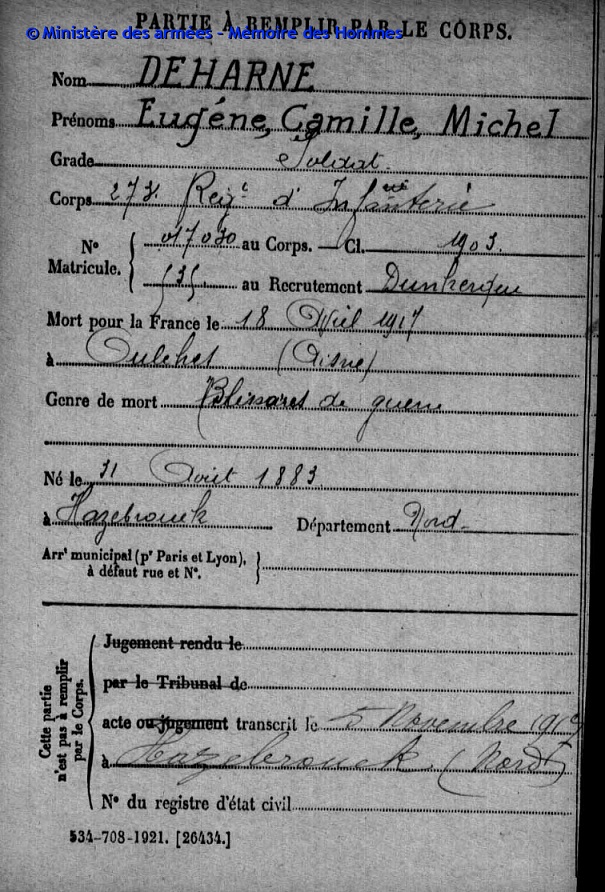 PARTIE À REMPLIR PAR LE CORPS.
© Ministère des armées - Mémoire des Hommes
Nom DEHARNE
Prénoms Eugéne, Camille, Michel
Grade Soldat.
Corps 273. Reg.t d'Infanterie
N° Matricule. { 017030 au Corps. — Cl. 1903.
535. au Recrutement Dunkerque
Mort pour la France le 18 Avril 1917
à Oulches (Aisne)
Genre de mort Blessures de guerre
Né le 31 Août 1883
à Hazebrouck Département Nord
Arrt municipal (pr Paris et Lyon), à défaut rue et N°.
Cette partie n'est pas à remplir par le Corps.
Jugement rendu le
par le Tribunal de
acte ou jugement transcrit le 5 Novembre
à Hazebrouck. (Nord)
N° du registre d'état civil
534-708-1921. [26434.]